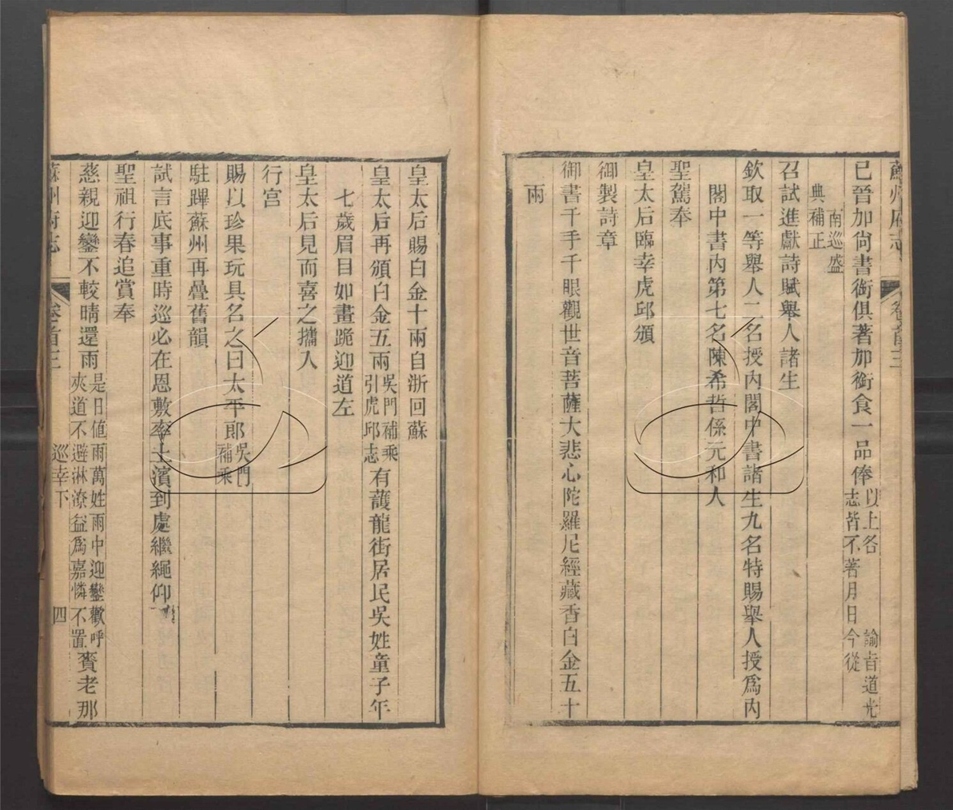 蘇州府志 卷首三
已晉加尚書銜俱著加銜食一品俸以上各 諭旨道光
志皆不著月日今從
南巡盛
典補正
召試進獻詩賦舉人諸生
欽取一等舉人二名授內閣中書諸生九名特賜舉人授爲內
閣中書內第七名陳希哲係元和人
聖駕奉
皇太后臨幸虎邱頒
御製詩章
御書千手千眼觀世音菩薩大悲心陀羅尼經藏香白金五十
兩
皇太后賜白金十兩自浙回蘇
皇太后再頒白金五兩吳門補乘
引虎邱志有護龍街居民吳姓童子年
七歲眉目如畫跪迎道左
皇太后見而喜之攜入
行宮
賜以珍果玩具名之曰太平郎吳門
補乘
駐蹕蘇州再疊舊韻
試言底事重時巡必在恩敷率土濱到處繼繩仰
聖祖行春追賞奉
慈親迎鑾不較晴還雨是日值雨萬姓雨中迎鑾歡呼
夾道不避淋潦益爲嘉憐不置賚老那
蘇州府志 卷首三 巡幸下 四